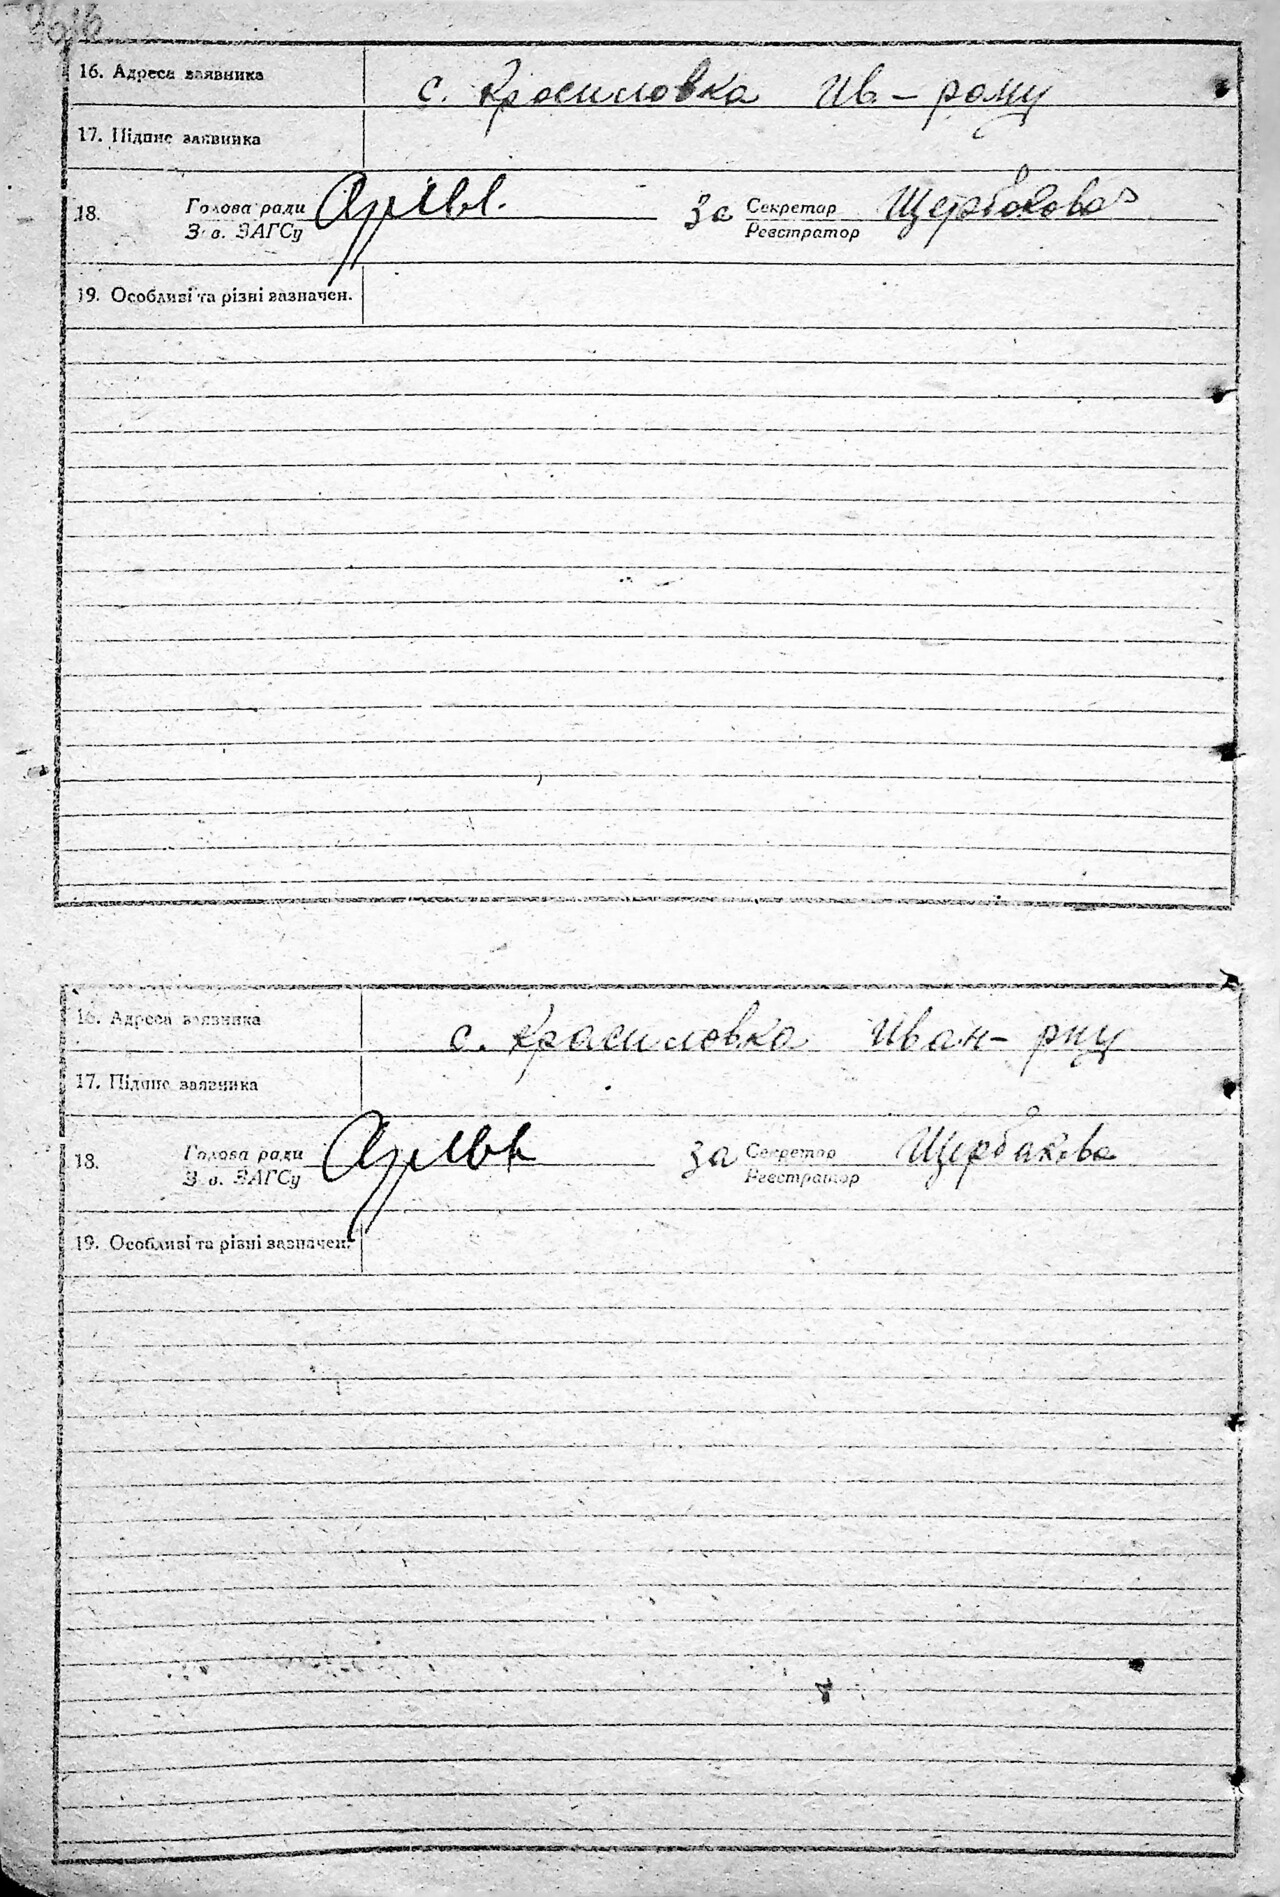 16. Адреса заявника с. Красиловка Ив-рону
17. Підпис заявника
18. Голова ради За Секретар Щербакова
Зав. ЗАГСу Реєстратор
19. Особливі та різні зазначен.
16. Адреса заявника с. Красиловка Иван-рну
17. Підпис заявника
18. Голова ради за Секретар Щербакова
Зав. ЗАГСу Реєстратор
19. Особливі та різні зазначен.